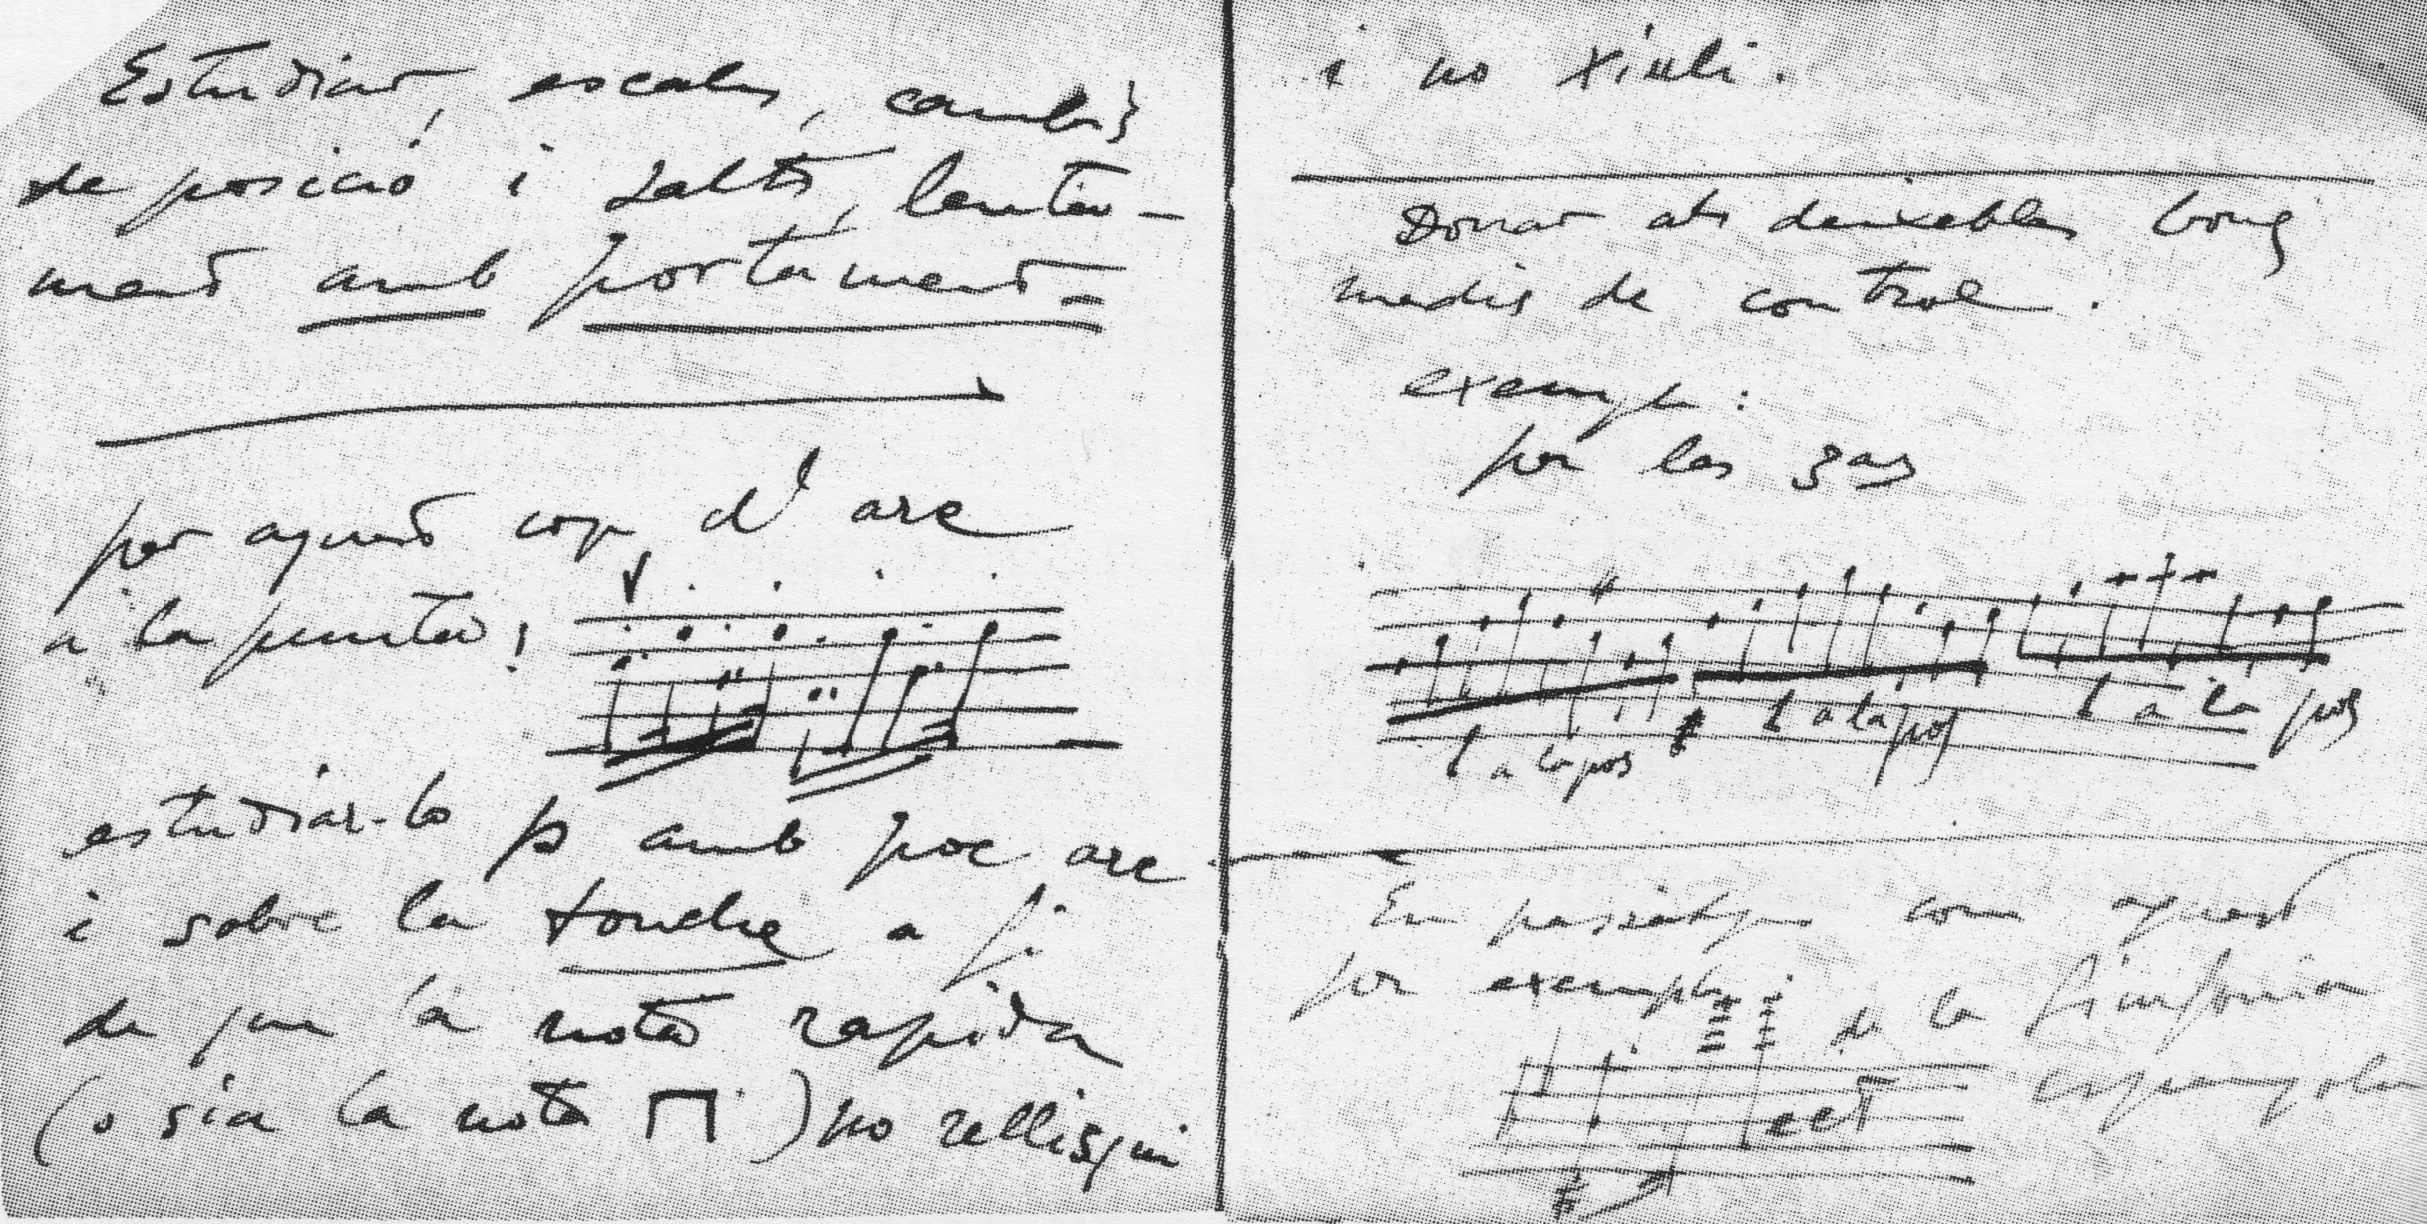 Estudiar, escales, cambis
de posició i salts, lenta-
ment amb portament =
per aquest cop d'arc
a la punta!
estudiar-lo p amb poc arc
i sobre la touche a fi
de que la nota rapida
(o sia la nota ⊓) no rellisqui
i no xiuli.
Donar als deixebles bons
medis de control.
exemple:
per les 3as
1 a la pos
1 a la pos
1 a la pos
En passatges com aquest
per exemple
de la Sinfonia
espanyola
ect